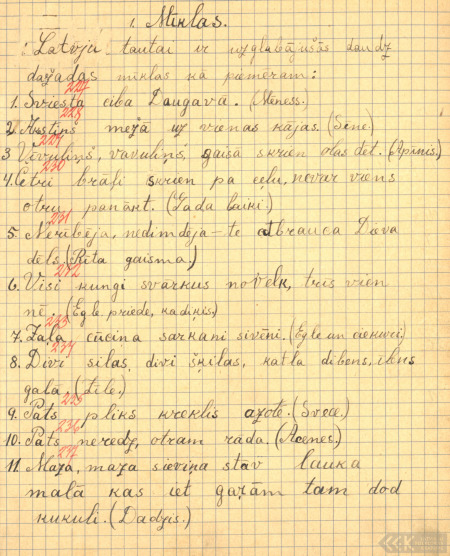 1. Miklas.
Latvju tautai ir uzglabājušās daudz
dažadas miklas kā pameram:
227
1. Sviesta ciba Daugavā. (Mēness.)
228
2. Austiņš mežā uz vienas kājas. (Sēne.)
229
3. Vēvuliņš, vāvuliņš, gaisā skrien olas dēt. (Apinis.)
230
4. Četri brāļi skrien pa ceļu, nevar viens
otru panākt. (Gada laiki.)
231
5. Nerībēja, nedimdēja – te atbrauca Dieva
dēls. (Rīta gaisma.)
232
6. Visi kungi svārkus novelk, trīs vien
nē. (Egle, priede, kadiķis.)
233
7. Zaļa cūciņa sarkani sivēni. (Egle un ciekuri.)
234
8. Divi silas, divi šķilas, katla dibens, ilens
galā. (Zīle.)
235
9. Pats pliks krekls azotē. (Svece.)
236
10. Pats neredz, otram rāda. (Acenes.)
237
11. Maza, maza sieviņa stāv lauka
malā kas iet gaŗām tam dod
kukuli. (Dadzis.)